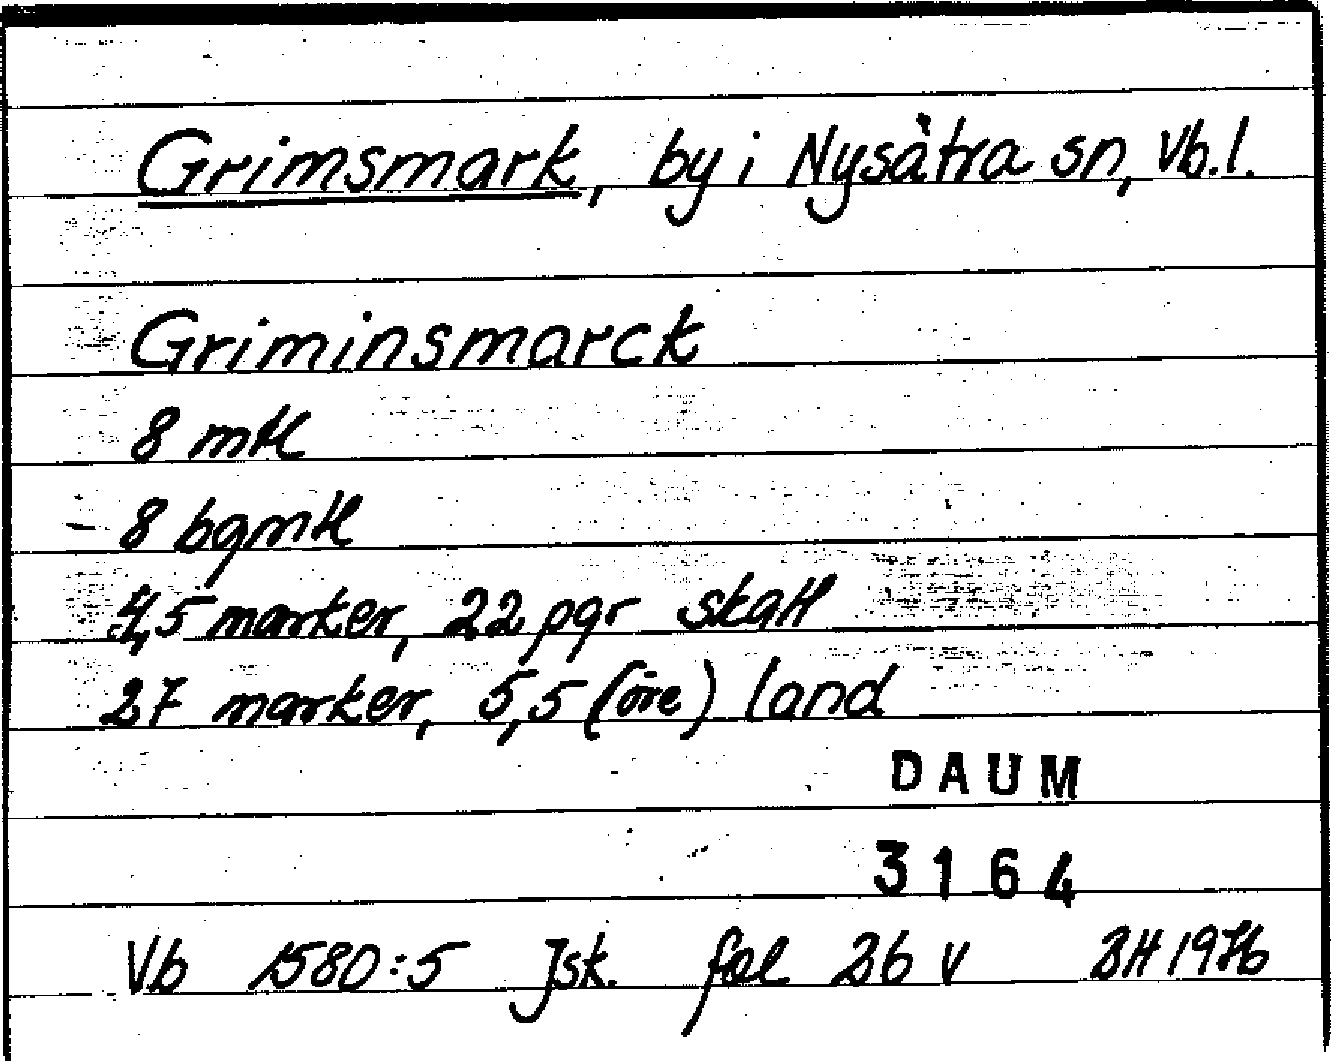 Grimsmark, by i Nysätra sn, Vb.l.
Griminsmarck
8 mtl
- 8 bgmtl
4,5 marker, 22 pgr skatt
27 marker, 5,5 (öre) land
DAUM
3164
Vb 1580:5 Jsk. fol 26 v BH 1976